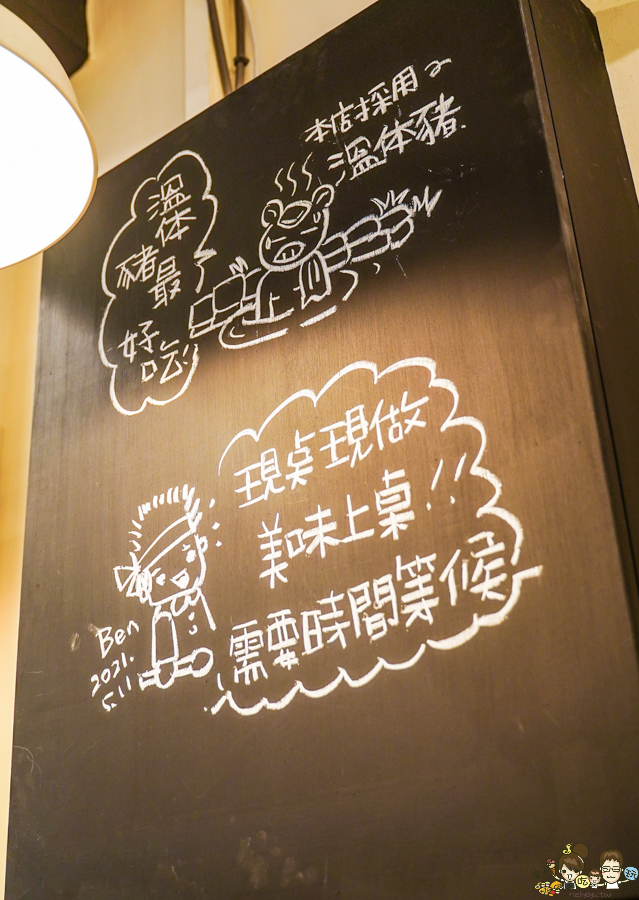 本店採用
溫体豬
溫体
豬最
好吃!
現桌現做
美味上桌!!
需要時間等候
Ben
2021.
5.11